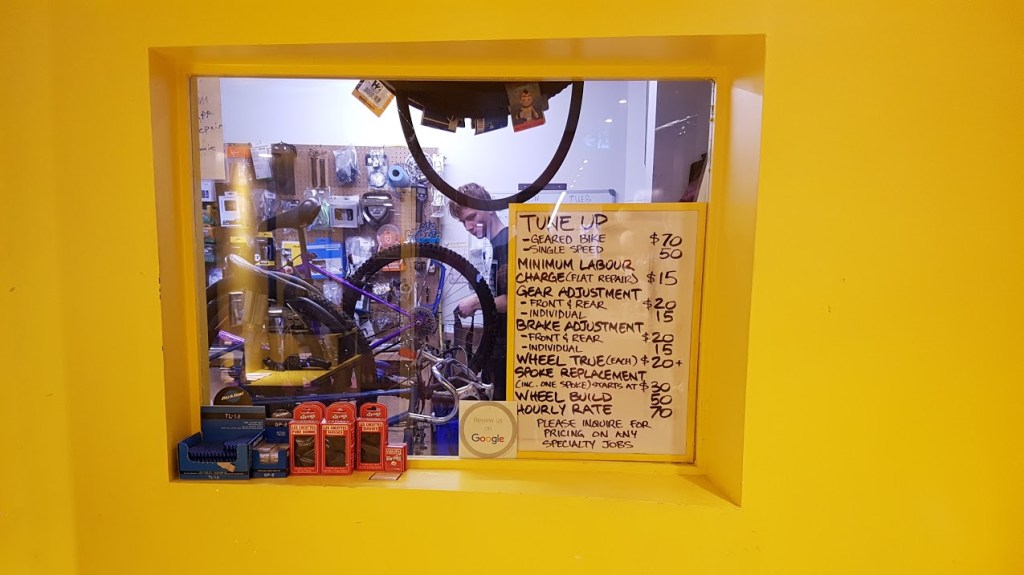 TUES
TUNE UP
-GEARED BIKE $70
-SINGLE SPEED 50
MINIMUM LABOUR
CHARGE (FLAT REPAIR) $15
GEAR ADJUSTMENT
-FRONT & REAR $20
-INDIVIDUAL 15
BRAKE ADJUSTMENT
-FRONT & REAR $20
-INDIVIDUAL 15
WHEEL TRUE (EACH) $20+
SPOKE REPLACEMENT
(INC. ONE SPOKE) STARTS AT $30
WHEEL BUILD 50
HOURLY RATE 70
PLEASE INQUIRE FOR
PRICING ON ANY
SPECIALTY JOBS
Review us
on
Google
TL-1.2